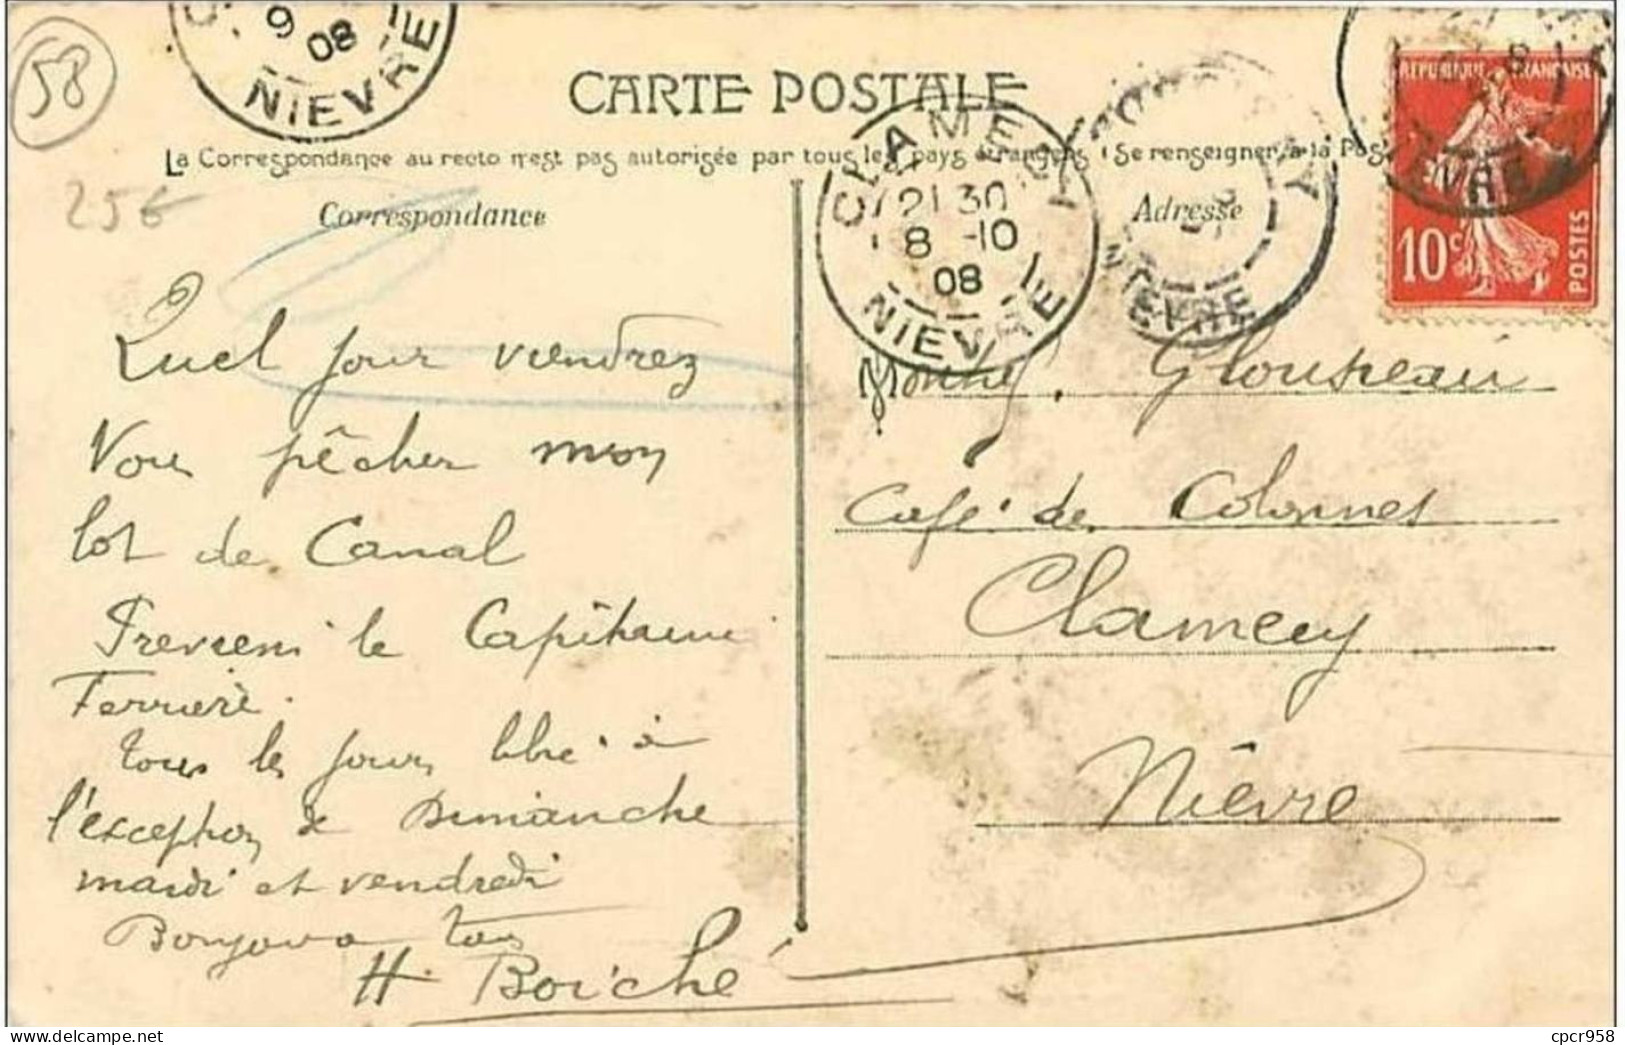 58
9
08
NIEVRE
CARTE POSTALE
La Correspondance au recto n'est pas autorisée par tous les pays étrangers (Se renseigner à la Pos
25€
Correspondance
Adresse
CLAMECY
21 30
8 -10
08
NIEVRE
NIEVRE
REPUBLIQUE FRANÇAISE
10c
POSTES
Quel jour viendrez
Vous pêcher mon
lot de Canal
Preveens le Capitaine
Ferriere.
tous les jours libre à
l'exception de Dimanche
mardi et vendredi
Bonjour a tous
H. Boiché
Glouseau
Café des Colonnes
Clamecy
Nièvre
delcampe.net
cpcr958